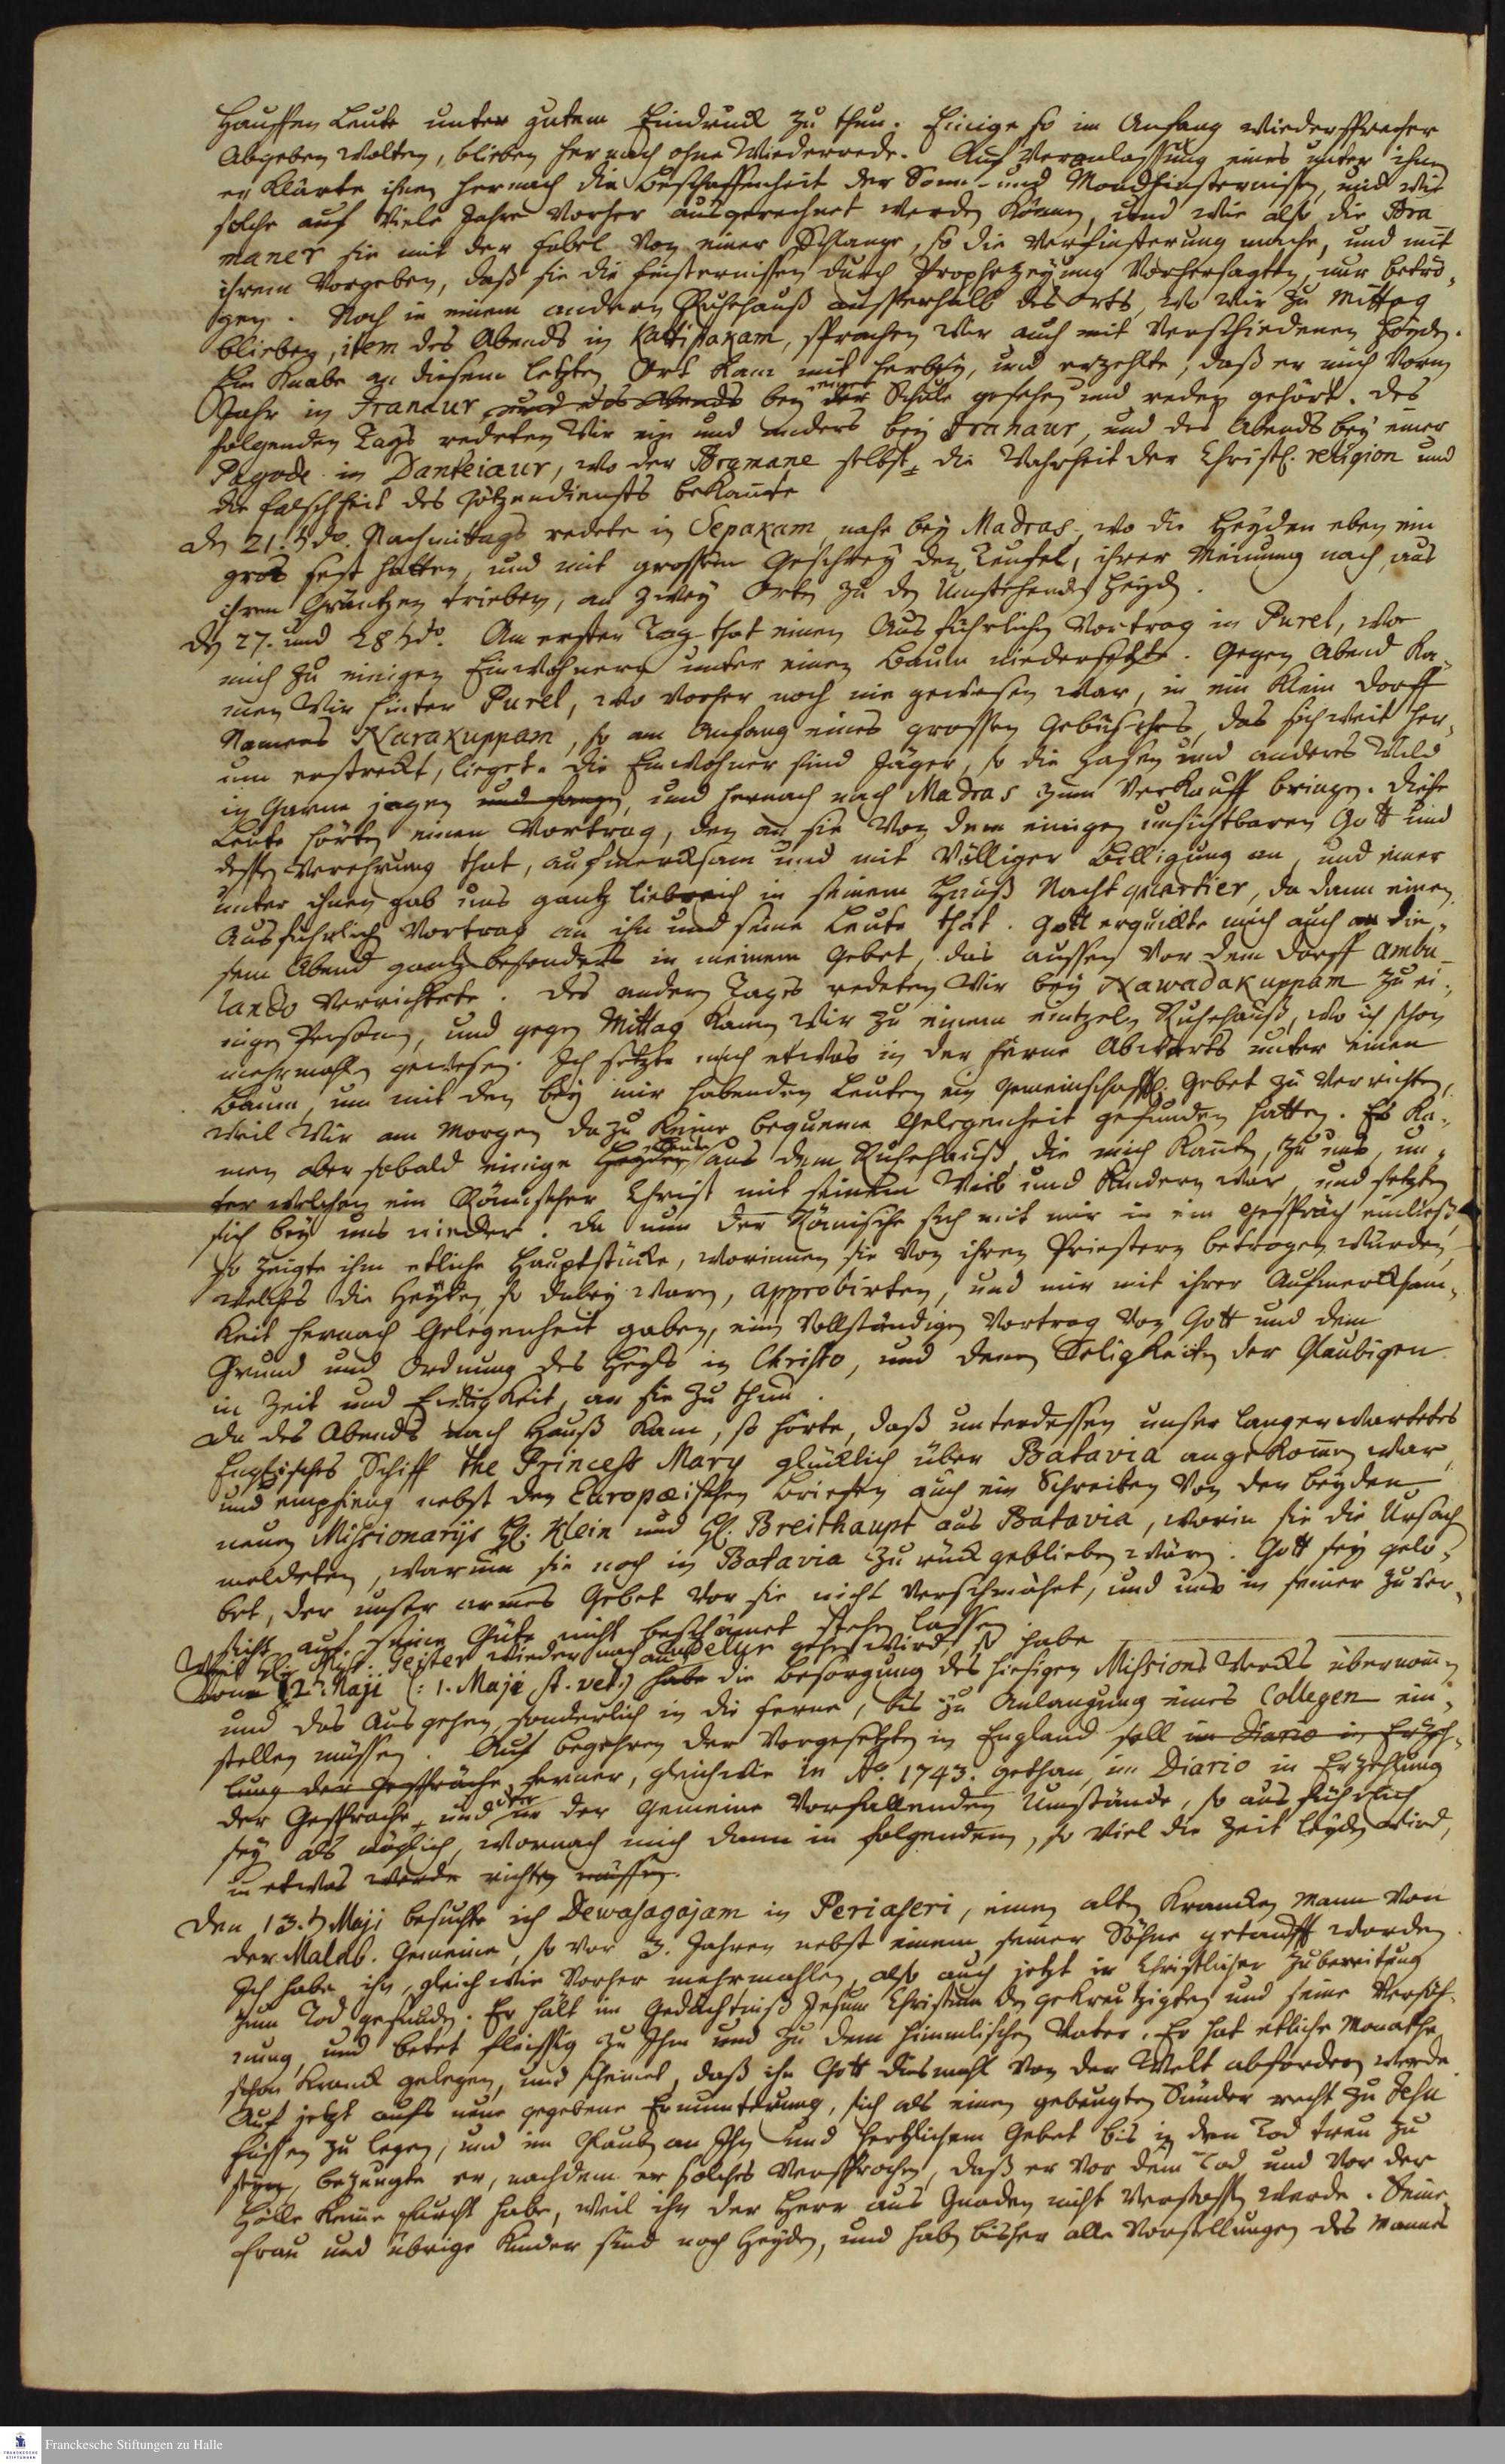 Hauffen Leute unter gutem Eindruck zu thun. Einige so im Anfang wiedersprecher
abgeben wolten, blieben hernach ohne Wiederrede. Auf Veranlassung eines unter ihnen
erklärte ihnen hernach die Beschaffenheit der Sonn- und Mondfinsternissen, und wie
solche auf viele Jahre vorher ausgerechnet werden können, und wie also die Bra-
maner sie mit der Fabel von einer Schlange, so die Verfinsterung mache, und mit
ihrem Vorgeben, daß sie die Finsternissen durch Prophezeyung vorhersagten, nur betrö-
gen. Noch in einem andern Ruhehauß ausserhalb des Orts, wo wir zu Mittag
blieben, item des Abends in Kattipakam, sprachen wir auch mit verschiedenen Heyden.
Ein Knabe an diesem letzten Ort kam mit herbey, und erzehlte, daß er mich vorm
Jahr in Iranaur und des Abends bey der einer Schule gesehen und reden gehört. Des
folgenden Tags redeten wir ein und anders bey Iranaur, und des Abends bey einer
Pagode in Dankeiaur, wo der Bramane selbst die Wahrheit der Christl. religion und
die Falschheit des Götzendiensts bekante
Den 21. do. Nachmittags redete in Sepakam, nahe bey Madras, wo die Heyden eben ein
gros fest hatten, und mit grossem Geschrey den Teufel, ihrer Meinung nach, aus
ihren Gräntzen trieben, an zwey Orten zu den Umstehenden Heyden.
Den 27. und 28. do. Am ersten Tag that einen Ausführlichen Vortrag in Purel, wo
mich zu einigen Einwohnern unter einen Baum niedersetzte. Gegen Abend ka-
men wir hinter Purel, wo vorher noch nie gewesen war, in ein klein Dorff
Namens Narakuppam, so am Anfang eines grossen Gebüsches, das sich weit her-
um erstreckt, lieget. Die Einwohner sind Jäger, so die Hasen und anderes Wild
in Garne jagen und fangen, und hernach nach Madras zum Verkauff bringen. Diese
Leute hörten einen Vortrag, den an sie von dem einigen unsichtbaren Gott und
dessen Verehrung that, aufmercksam und mit völliger Billigung an, und einer
unter ihnen gab uns gantz liebreich in seinem Hauß Nachtquartier, da dann einen
Ausführlichen Vortrag an ihn und seine Leute that. Gott erquickte mich auch an die-
sem Abend gantz besonders in meinem Gebet, das aussen vor dem Dorff ambu-
lando verrichtete. Des andern Tages redeten wir bey Nawadakuppam zu ei-
nigen Personen, und gegen Mittag kamen wir zu einem eintzeln Ruhehauß, wo ich schon
mehrmahlen gewesen. Ich setzte mich etwas in der Ferne Abwärts unter einen
Baum, um mit den bey mir habenden Leuten ein gemeinschafftl. Gebet zu verrichten,
weil wir am Morgen dazu keine bequeme Gelegenheit gefunden hatten. Es ka-
men aber sobald einige Heyden Leute aus dem Ruhehauß, die mich kanten, zu uns, un-
ter welchen ein Römischer Christ mit seinem Weib und Kindern war, und setzten
sich bey uns nieder. Da nun der Römische sich mit mir in ein Gespräch einließ,
so zeigte ihm etliche Hauptstücke, worinnen sie von ihren Priestern betrogen würden,
welches die Heyden, so dabey waren, approbirten, und mir mit ihrer Aufmercksam-
keit hernach Gelegenheit gaben, einen vollständigen Vortrag von Gott und dem
Grund und Ordnung des Heyls in Christo, und denen Seligkeiten der Glaubigen
in Zeit und Ewigkeit, an sie zu thun.
Da des Abends nach Hauß kam, so hörte, daß unterdessen unser langerwartetes
Englisches Schiff the Princess Mary glücklich über Batavia angekommen war,
und empfieng nebst den Europæischen Briefen auch ein Schreiben von den beyden
neuen Missionarijs H. Klein und H. Breithaupt aus Batavia, worin sie die Ursach
meldeten, warum sie noch in Batavia zurück geblieben wären. Gott sey gelo-
bet, der unser armes Gebet vor sie nicht verschmähet, und uns in seiner Zuver-
sicht auf seine Güte nicht beschämet stehen lassen
Weil H. Miss. Geister wieder nach Cudelur gehen wird, so habe
vom 12. Maji (: 1. Maji st. vet.) habe die Besorgung des hiesigen Missions Wercks übernommen
und das Ausgehen, sonderlich in die Ferne, bis zu Anlangung eines Collegen ein-
stellen müssen. Auf begehren der Vorgesetzten in England soll im Diario in Erzeh-
lung der Gespräche ferner, gleichwie in Ao. 1743. gethan, im Diario in Erzehlung
der Gespräche, und der in der Gemeine vorfallenden Umstände, so ausführlich
sey als möglich, wornach mich dann in folgendem, so viel die Zeit leyden wird,
in etwas werde richten müssen.
Den 13. Maji besuchte ich Dewasagajam in Periaseri, einen alten krancken Mann von
der Malab. Gemeine, so vor 3. Jahren nebst einem seiner Söhne getaufft worden.
Ich habe ihn, gleichwie vorher mehrmahlen, also auch jetzt in Christlicher Zubereitung
zum Tod gefunden. Er hält im Gedächtniß Jesum Christum den gekreutzigten und seine Versöh-
nung, und betet fleissig zu Ihm und zu dem himmlischen Vater. Er hat etliche Monathe
schon kranck gelegen, und scheinet, daß ihn Gott diesmahl von der Welt abfordern werde.
Auf jetzt aufs neue gegebene Ermunterung, sich als einen gebeugten Sünder recht zu Jesu
Füssen zu legen, und im Glauben an Ihn und hertzlichem Gebet bis in den Tod treu zu
seyn, bezeugte er, nachdem er solches versprochen, daß er vor dem Tod und vor der
Hölle keine Furcht habe, weil ihn der Herr aus Gnaden nicht verstossen werde. Seine
Frau und übrige Kinder sind noch Heyden, und haben bisher alle Vorstellungen des Mannes
Franckesche Stiftungen zu Halle